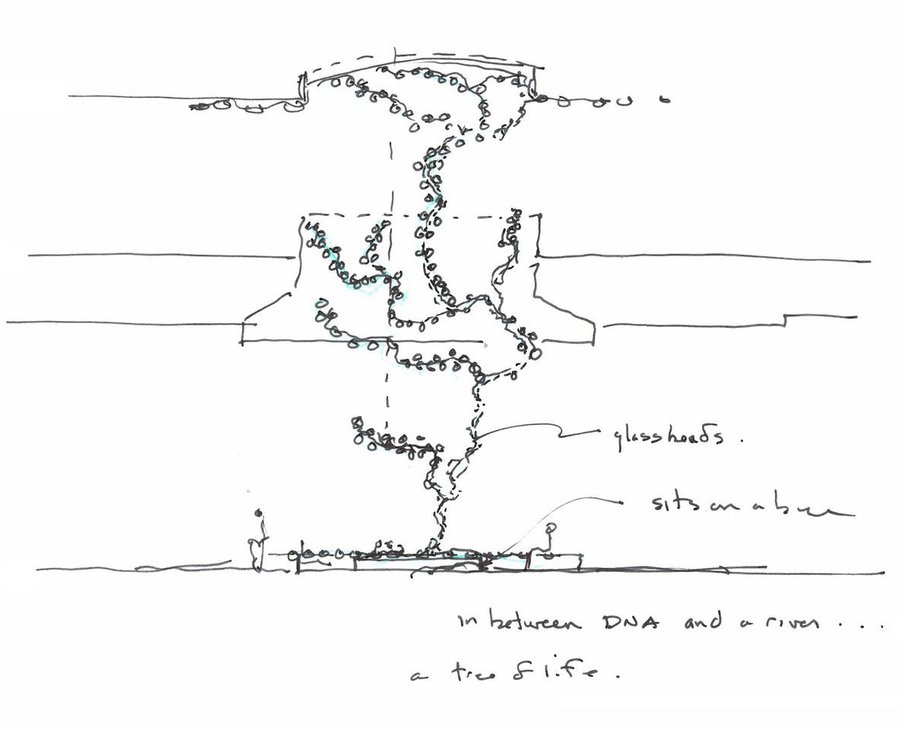 glass beads .
sits on a base
in between DNA and a river . . .
a tree of life .